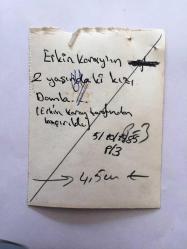 Erkin Koray'ın
2 yaşındaki kızı
Damla.
(Erkin Koray tarafından
kaçırıldı)
P/3
4,5 cm